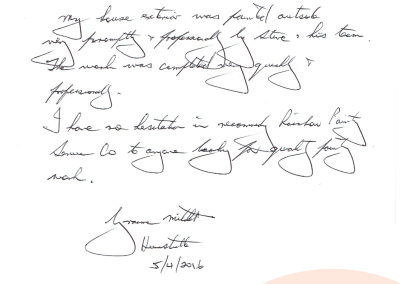 My house exterior was painted outside
very promptly & professionally by Steve & his team.
The work was completed very quickly &
professionally.
I have no hesitation in recommending Rainbow Painting
Service Co to anyone looking for quality painting
work.
Hurstville
5/4/2016